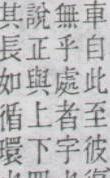 車自此至彼
無乎處者字
說正與上下
其長如循環